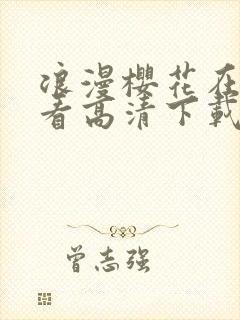 浪漫樱花在
看高清下载
曾志强